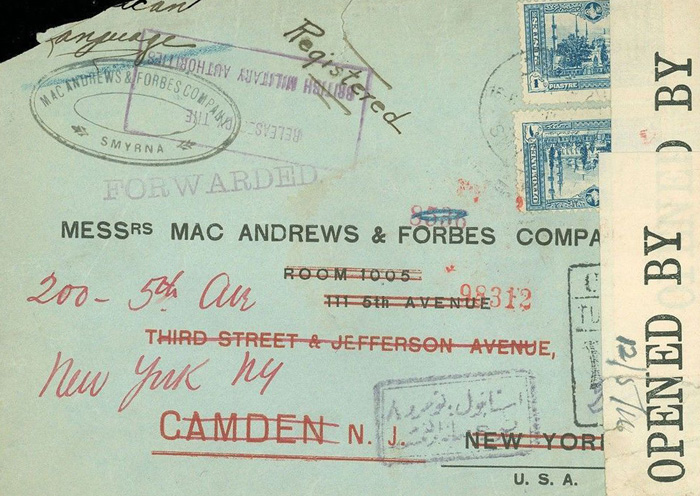 can
Language
Registered
MAC ANDREWS & FORBES COMPANY
SMYRNA
RELEASED
THE
BRITISH MILITARY AUTHORITIES
FORWARDED
1
PIASTRE
OTTOMANES
MESSRS MAC ANDREWS & FORBES COMPA
ROOM 1005
98312
111 5th AVENUE
200 - 5th Ave
THIRD STREET & JEFFERSON AVENUE,
New York NY
CAMDEN N. J.
NEW YORK
U. S. A.
استانبول
OPENED BY
12/5/16